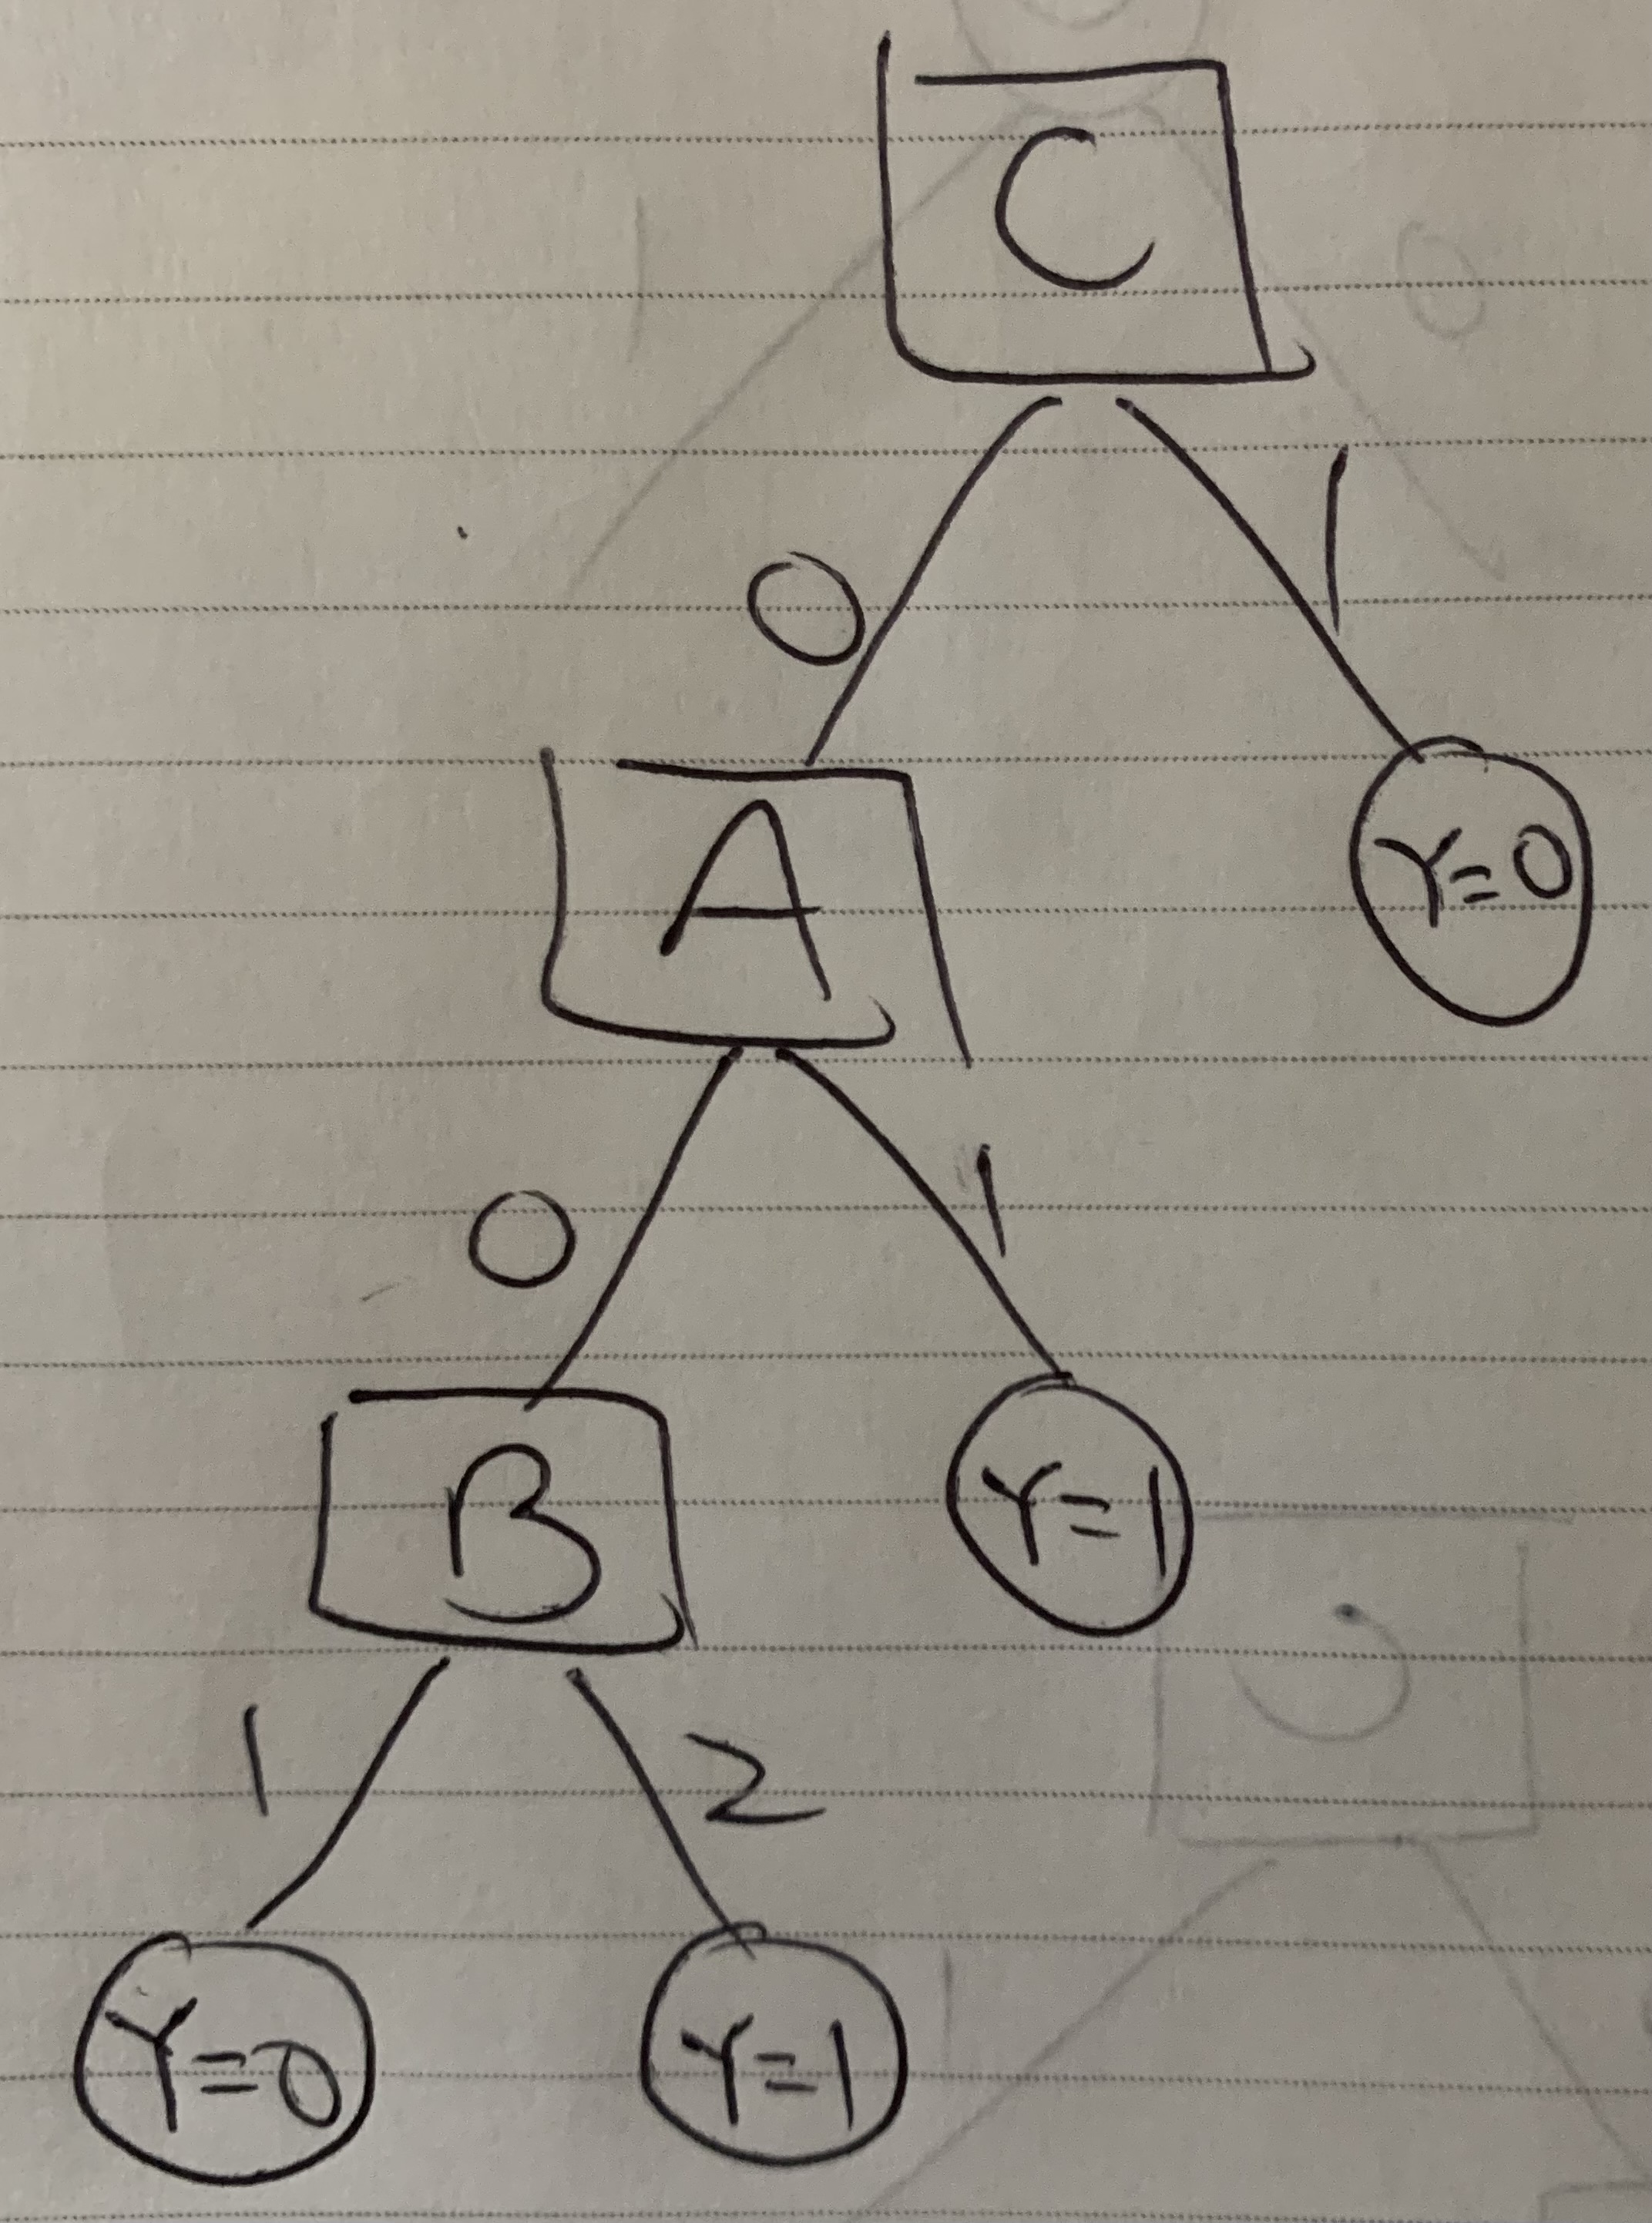 C
0 1
A Y=0
0 1
B Y=1
1 2
Y=0 Y=1